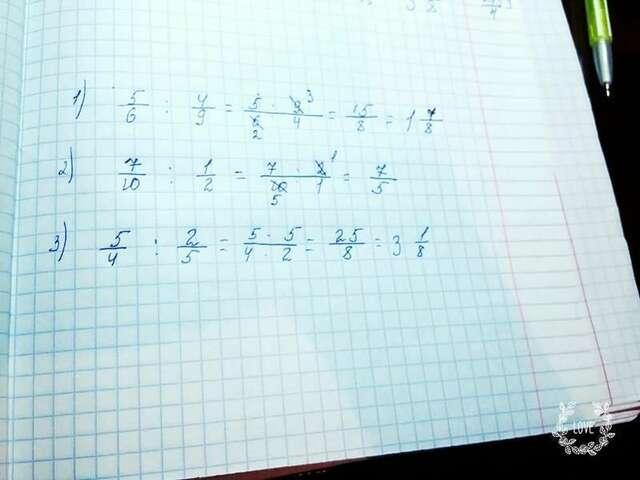 1) 5/6 : 4/9 = 5 · 9 3 / 6 2 · 4 = 15/8 = 1 7/8
2) 7/10 : 1/2 = 7 · 2 1 / 10 5 · 1 = 7/5
3) 5/4 : 2/5 = 5 · 5 / 4 · 2 = 25/8 = 3 1/8
LOVE